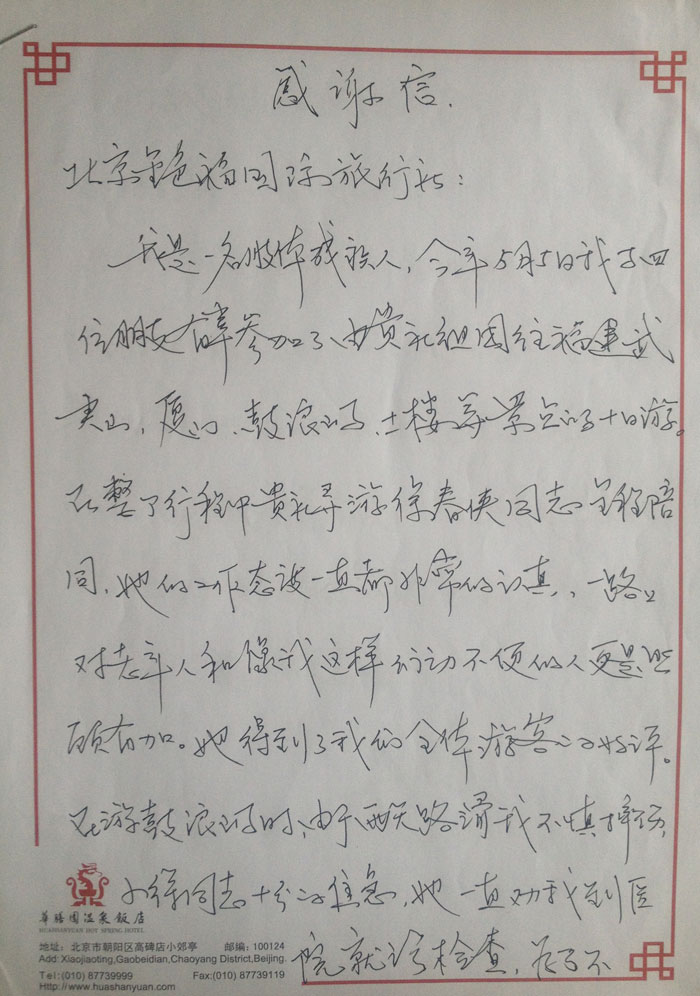 感谢信.
北京金色福国际旅行社:
我是一名肢体残疾人,今年5月5日我与四
位朋友有幸参加了由贵社组团往福建武
夷山、厦门、鼓浪屿、土楼等景点的十日游。
在整个行程中贵社导游徐春侠同志全程陪
同,她的工作态度一直都非常的认真,一路上
对老年人和像我这样行动不便的人更是照
顾有加。她得到了我们全体游客的好评。
在游鼓浪屿时,由于雨天路滑我不慎摔伤,
小徐同志十分的焦急,她一直劝我到医
院就诊检查,为了不
華膳園温泉飯店
HUASHANYUAN HOT SPRING HOTEL
地址: 北京市朝阳区高碑店小郊亭 邮编: 100124
Add: Xiaojiaoting,Gaobeidian,Chaoyang District,Beijing.
Tel:(010) 87739999 Fax:(010) 87739119
Http://www.huashanyuan.com